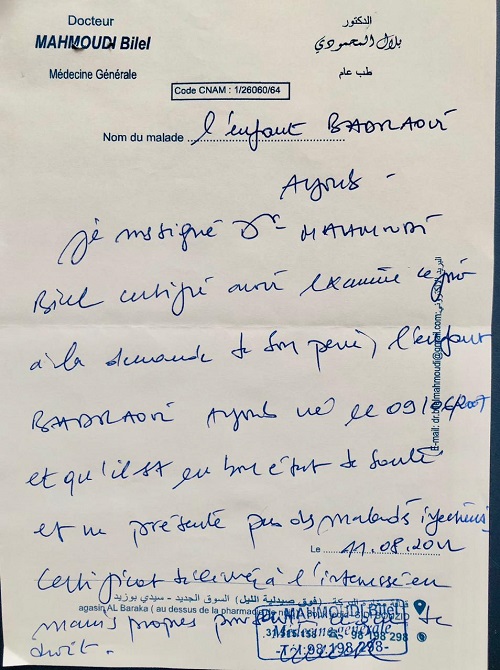 Docteur
MAHMOUDI Bilel
Médecine Générale
الدكتور
بلال المحمودي
طب عام
Code CNAM : 1/26060/64
Nom du malade l'enfant BADRAOUI
Ayoub -
Je soussigné Dr MAHMOUDI
Bilel certifié avoir examiné ce jour
à la demande de son père, l'enfant
BADRAOUI Ayoub né le 09/
et qu'il est en bon état de santé
et ne présente pas des maladies infectieuses
Le 11.08.20
Certificat délivré à l'intéressé en
mains propres pour
droit.
(فوق صيدلية الليل) السوق الجديد - سيدي بوزيد
agasin AL Baraka ( au dessus de la pharmacie
98 198 298
MAHMOUDI Bilel
Médecine générale
Tél: 98.198.298-
E-mail: mahmoudi@gmail.com البريد الإلكتروني: